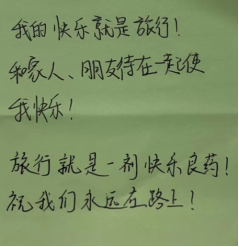 我的快乐就是旅行！
和家人、朋友待在一起使
我快乐！
旅行就是一剂快乐良药！
祝我们永远在路上！